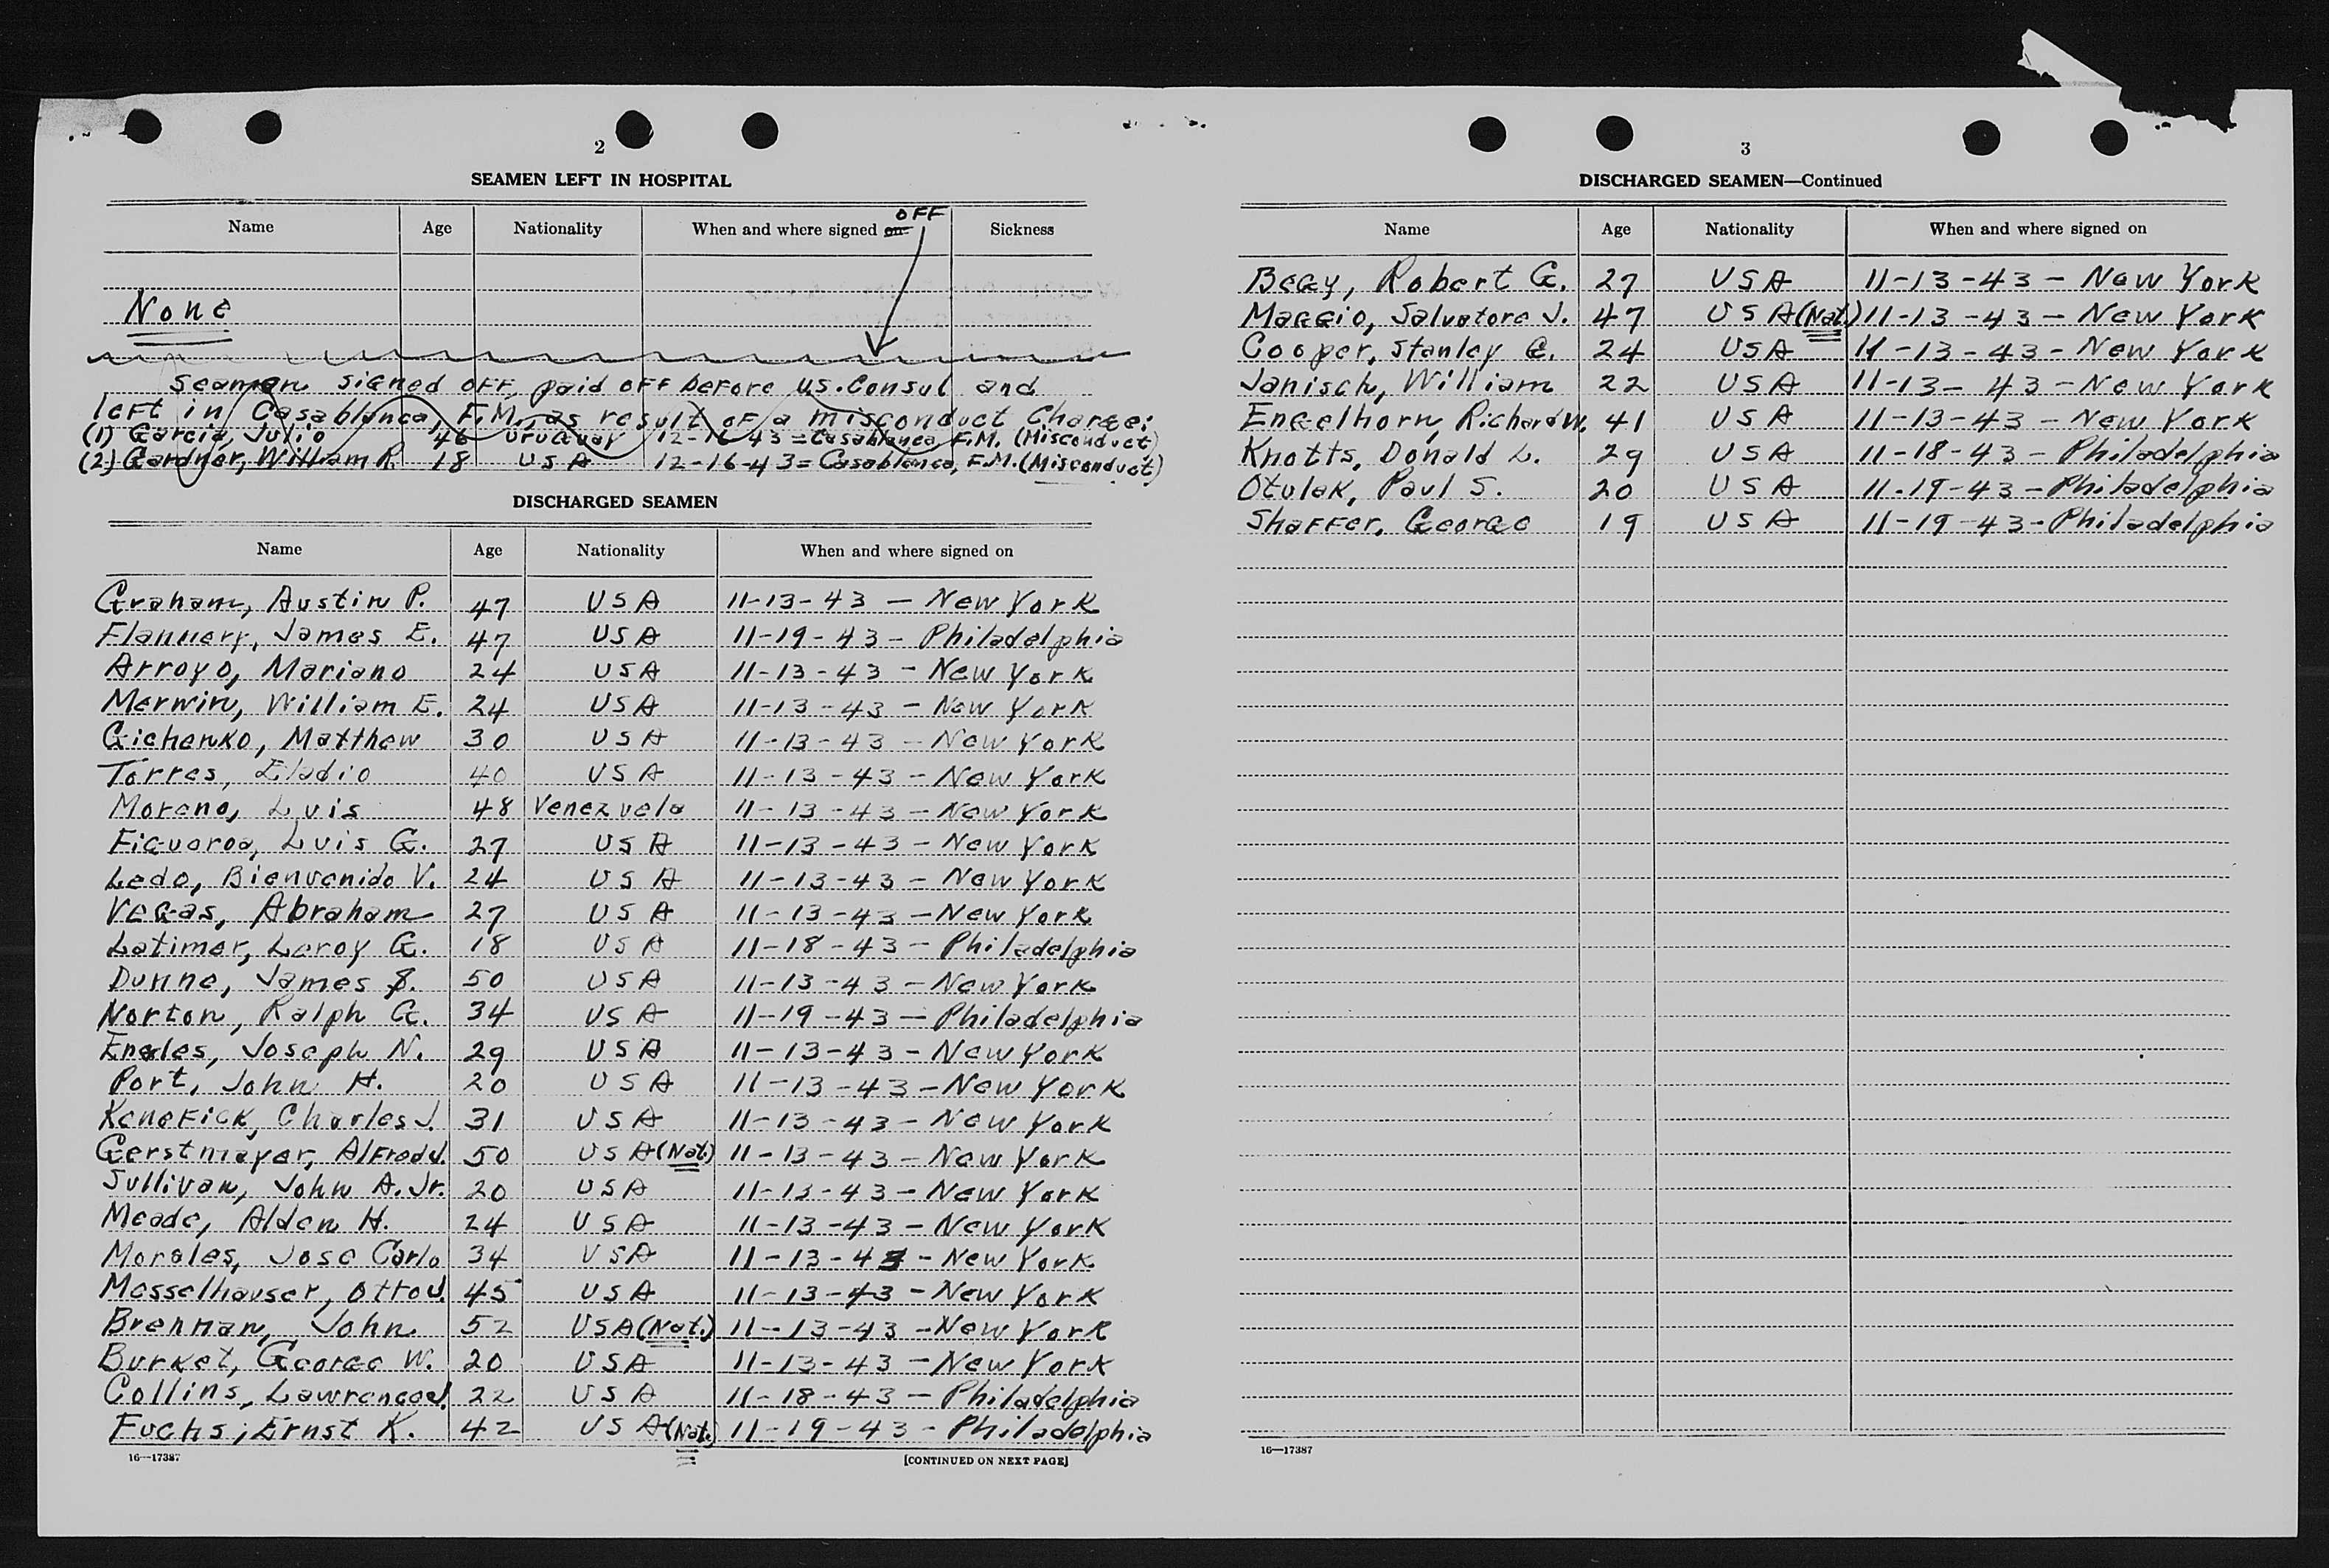 2
SEAMEN LEFT IN HOSPITAL
OFF
Name Age Nationality When and where signed on Sickness
None
Seamen signed off, paid off before U.S. Consul and
left in Casablanca, F.M., as result of a misconduct charge:
(1) Garcia, Julio 46 Uruguay 12-16-43 = Casablanca, F.M. (Misconduct)
(2) Gardner, William R. 18 USA 12-16-43 = Casablanca, F.M. (Misconduct)
DISCHARGED SEAMEN
Name Age Nationality When and where signed on
Graham, Austin P. 47 USA 11-13-43 - New York
Flannery, James E. 47 USA 11-19-43 - Philadelphia
Arroyo, Mariano 24 USA 11-13-43 - New York
Merwin, William E. 24 USA 11-13-43 - New York
Gichenko, Matthew 30 USA 11-13-43 - New York
Torres, Eladio 40 USA 11-13-43 - New York
Moreno, Luis 48 Venezuela 11-13-43 - New York
Figueroa, Luis G. 27 USA 11-13-43 - New York
Ledo, Bienvenido V. 24 USA 11-13-43 - New York
Vegas, Abraham 27 USA 11-13-43 - New York
Latimer, Leroy G. 18 USA 11-18-43 - Philadelphia
Dunne, James J. 50 USA 11-13-43 - New York
Norton, Ralph G. 34 USA 11-19-43 - Philadelphia
Engles, Joseph N. 29 USA 11-13-43 - New York
Port, John H. 20 USA 11-13-43 - New York
Kenefick, Charles J. 31 USA 11-13-43 - New York
Gerstmayer, Alfred J. 50 USA (Nat.) 11-13-43 - New York
Sullivan, John A. Jr. 20 USA 11-13-43 - New York
Meade, Alden H. 24 USA 11-13-43 - New York
Morales, Jose Carlo 34 USA 11-13-43 - New York
Messelhauser, Otto J. 45 USA 11-13-43 - New York
Brennan, John 52 USA (Nat.) 11-13-43 - New York
Burket, George W. 20 USA 11-13-43 - New York
Collins, Lawrence J. 22 USA 11-18-43 - Philadelphia
Fuchs, Ernst K. 42 USA (Nat.) 11-19-43 - Philadelphia
16—17387 [CONTINUED ON NEXT PAGE]
3
DISCHARGED SEAMEN—Continued
Name Age Nationality When and where signed on
Begy, Robert G. 27 USA 11-13-43 - New York
Maggio, Salvatore J. 47 USA (Nat.) 11-13-43 - New York
Cooper, Stanley C. 24 USA 11-13-43 - New York
Janisch, William 22 USA 11-13-43 - New York
Engelhorn, Richard W. 41 USA 11-13-43 - New York
Knotts, Donald L. 29 USA 11-18-43 - Philadelphia
Otulak, Paul S. 20 USA 11-19-43 - Philadelphia
Shaffer, George 19 USA 11-19-43 - Philadelphia
16—17387